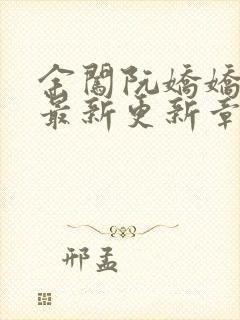 金閣阮嬌嬌
最新更新章
邢孟